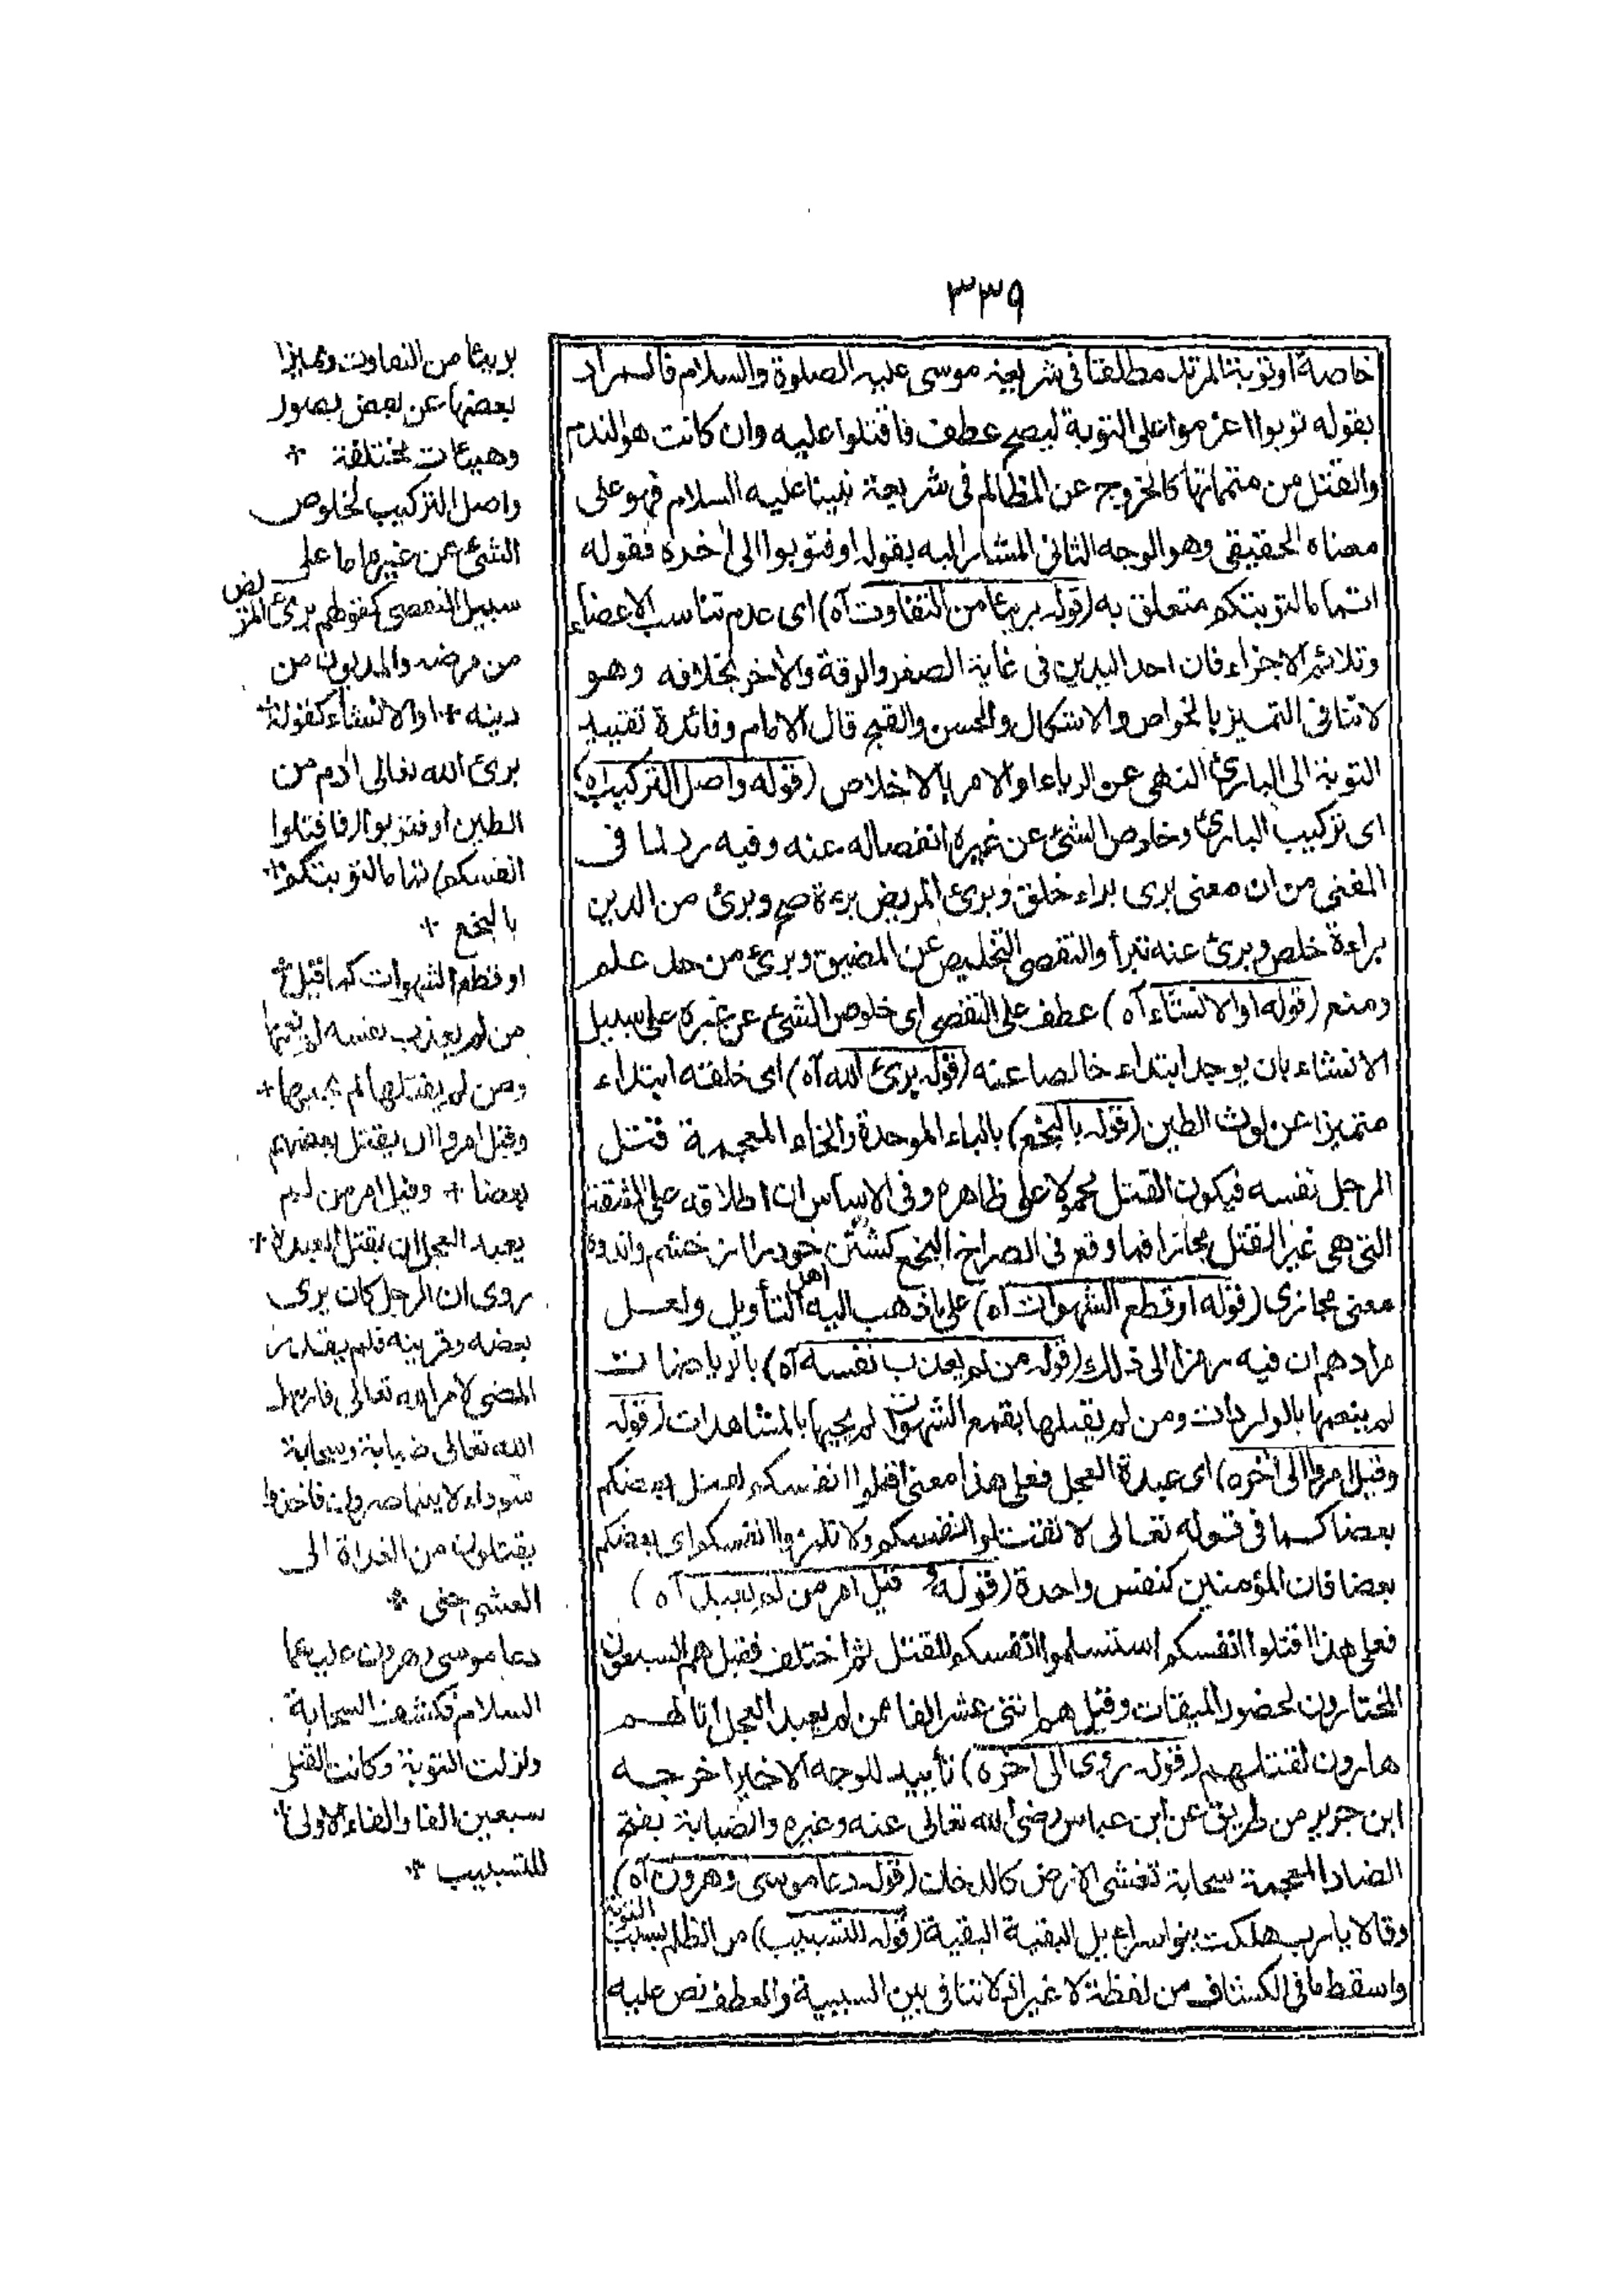 ٣٣٩
خاصة او توبة المرتد مطلقا فى شريعة موسى عليه الصلوة والسلام فالمراد
بقوله توبوا اعزموا على التوبة ليصح عطف فاقتلوا عليه وان كانت هو الندم
والقتل من متمماتها كالخروج عن المظالم فى شريعة نبينا عليه السلام فهو على
معناه الحقيقى وهو الوجه الثانى المشار اليه بقوله او فتوبوا الى آخره فقوله
اتماما لتوبتكم متعلق به (قوله بريئا من التفاوت آه) اى عدم تناسب الاعضاء
وتلائم الاجزاء فان احد اليدين فى غاية الصغر والرقة والآخر بخلافه وهو
لا ينافى التميز بالخواص والاشكال والحسن والقبح قال الامام وفائدة تقييد
التوبة الى البارئ النهى عن الرياء او الامر بالاخلاص (قوله واصل التركيب آه)
اى تركيب البارئ وخلوص الشئ عن غيره انفصاله عنه وفيه رد لما فى
المغنى من ان معنى برى براء خلق وبرئ المريض برءة صح وبرئ من الدين
براءة خلص وبرئ عنه تبرأ والتقصى التخليص عن المضيق وبرئ من حد علم
ومنع (قوله او الانشاء آه) عطف على التقصى اى خلوص الشئ عن غيره على سبيل
الانشاء بان يوجد ابتداء خالصا عنه (قوله برئ الله آه) اى خلقته ابتداء
متميزا عن لوث الطين (قوله بالبخع) بالباء الموحدة والخاء المعجمة قتل
الرجل نفسه فيكون القتل محمولا على ظاهره وفى الاساس ان اطلاقه على المشقة
التى هى غير القتل مجاز فما وقع فى الصراخ البخع كشتن خود را از خشم واندوه
معنى مجازى (قوله او قطع الشهوات آه) على ما ذهب اليه اهل التأويل ولعل
مرادهم ان فيه رمزا الى ذلك (قوله من لم يعذب نفسه آه) بالرياضات
لم ينعمها بالواردات ومن لم يقتلها بقمع الشهوات لم يحيها بالمشاهدات (قوله
وقيل امروا الى آخره) اى عبدة العجل فعلى هذا معنى اقتلوا انفسكم ليقتل بعضكم
بعضا كما فى قوله تعالى لا تقتلوا انفسكم ولا تلمزوا انفسكم اى بعضكم
بعضا فان المؤمنين كنفس واحدة (قوله وقيل امر من لم يعبد آه)
فعلى هذا اقتلوا انفسكم استسلموا انفسكم للقتل ثم اختلف فقيل هم السبعون
المختارون لحضور الميقات وقيل هم اثنى عشر الفا ممن لم يعبد العجل اتاهم
هارون لقتلهم (قوله روى الى آخره) تأييد للوجه الاخير اخرجه
ابن جرير من طريق عن ابن عباس رضى الله تعالى عنه وغيره والضبابة بفتح
الضاد المعجمة سحابة تغشى الارض كالدخان (قوله دعا موسى وهرون آه)
وقالا يا رب هلكت بنو اسراءيل البقية البقية (قوله للتسبيب) من الظلم بسبب التوبة
واسقط ما فى الكشاف من لفظة لا غير اذ لا تنافى بين السببية والعطف نص عليه
بريئا من التفاوت ومميزا
بعضها عن بعض بصور
وهيئات مختلفة +
واصل التركيب لخلوص
الشئ عن غيره اما على
سبيل التقصى كقولهم برئ المريض
من مرضه والمديون من
دينه + او الانشاء كقوله +
برئ الله تعالى آدم من
الطين او فتوبوا (فاقتلوا
انفسكم) تماما لتوبتكم +
بالبخع +
او قطع الشهوات كما قيل +
من لم يعذب نفسه لم ينعمها
ومن لم يقتلها لم يحييها +
وقيل امروا ان يقتل بعضهم
بعضا + وقيل امر من لم
يعبد العجل ان يقتل العبدة +
روى ان الرجل كان يرى
بعضه وقرينه فلم يقدر
المضى لامر الله تعالى فارسل
الله تعالى ضبابة وسحابة
سوداء لا يتباصرون فاخذوا
يقتلون من الغداة الى
العشى حتى +
دعا موسى وهرون عليهما
السلام فكشفت السحابة
ونزلت التوبة وكانت القتلى
سبعين الفا والفاء الاولى +
للتسبيب +